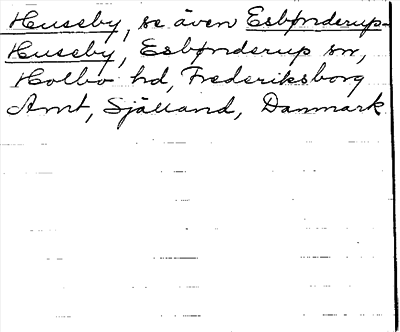 Huseby, se även Esbønderup-
Huseby, Esbønderup sn,
Holbo hd, Frederiksborg
Amt, Själland, Danmark